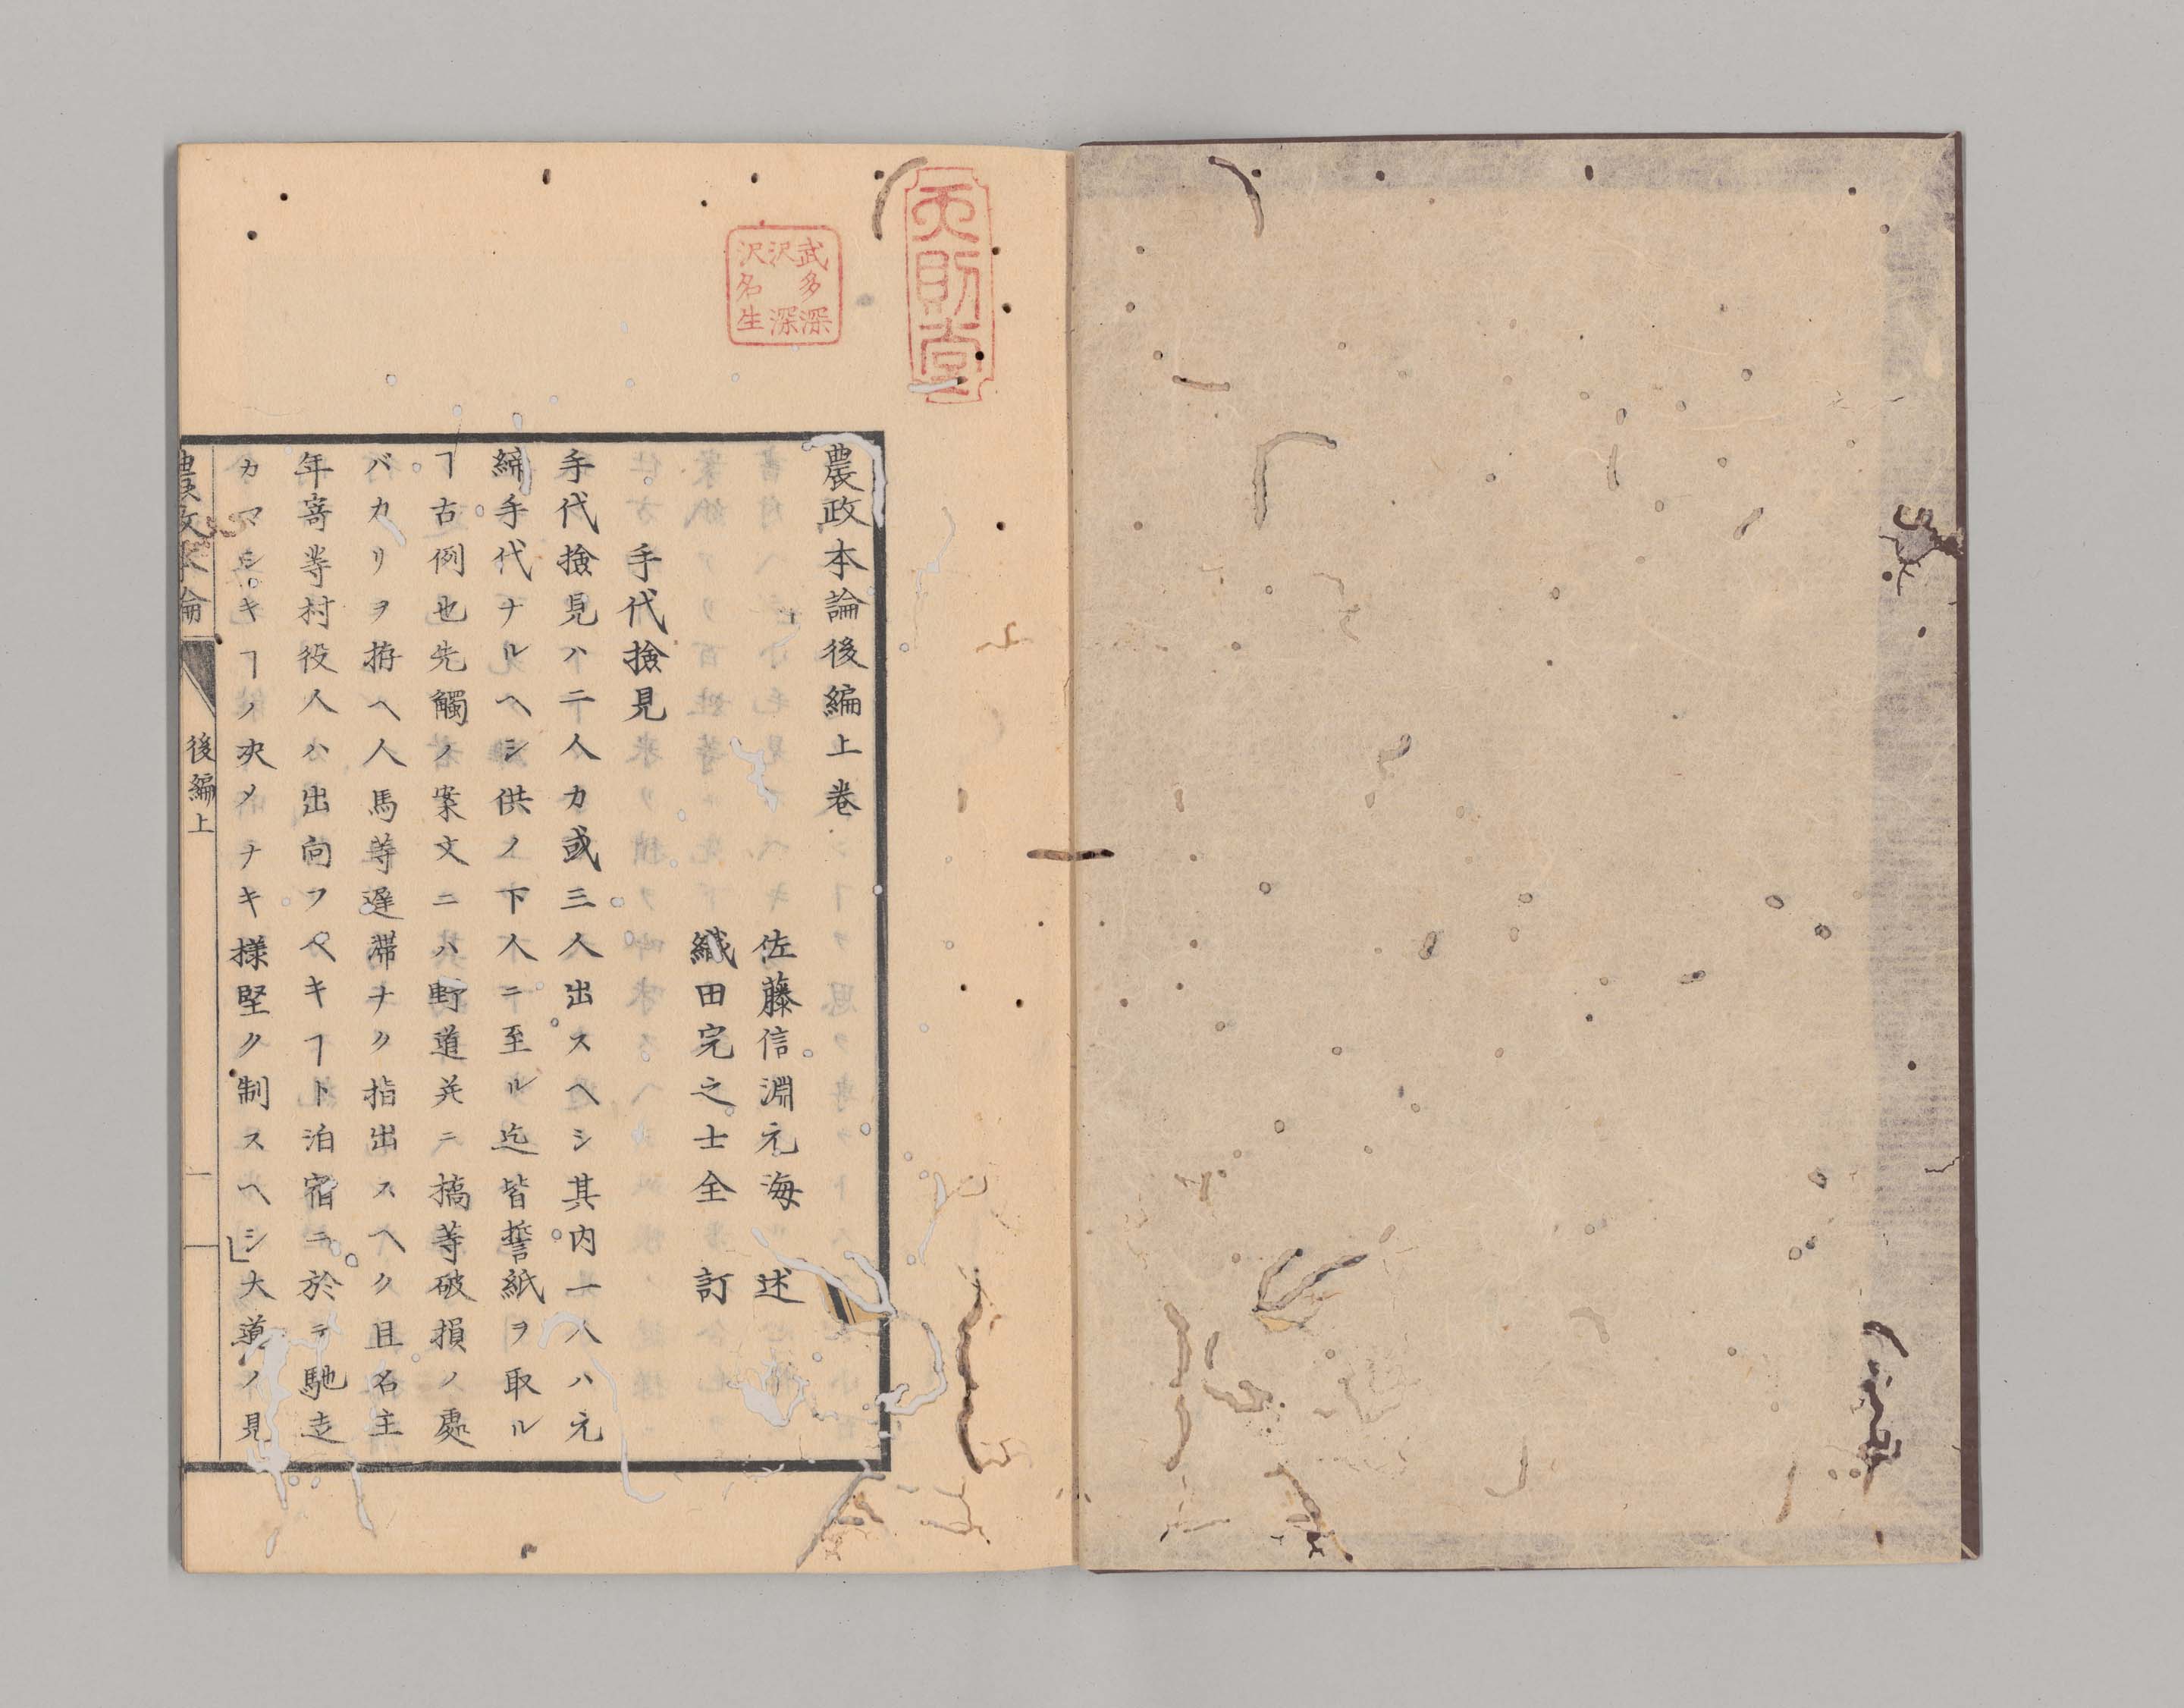 天財堂
武多深
沢深
沢名生
農政本論後編上卷
佐藤信淵元海述
織田完之士全訂
手代撿見
手代撿見ハ二人カ或三人出スヘシ其内一人ハ元
締手代ナルヘシ供ノ下人ニ至ル迄皆誓紙ヲ取ル
ヿ古例也先觸ノ案文ニハ野道并ニ橋等破損ノ處
バカリヲ拵ヘ人馬等遲滯ナク指出スヘク且名主
年寄等村役人ハ出向フヘキヿト泊宿ニ於テ馳走
カマシキヿノ决メナキ樣堅ク制スヘシ」大道ノ見
農政本論
後編上
一